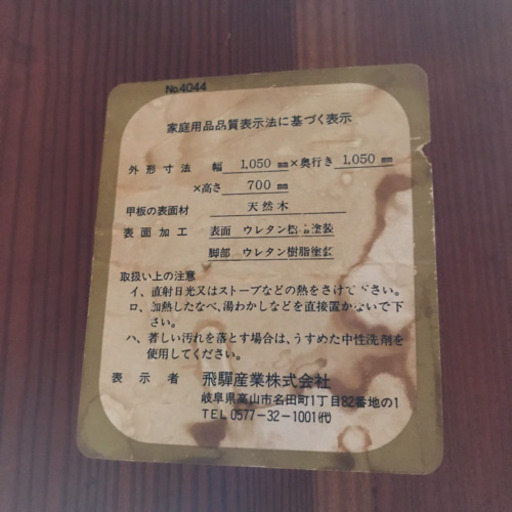 No.4044
家庭用品品質表示法に基づく表示
外形寸法 幅 1,050 mm×奥行き 1,050 mm
×高さ 700 mm
甲板の表面材 天然木
表面加工 表面 ウレタン樹脂塗装
脚部 ウレタン樹脂塗装
取扱い上の注意
イ、直射日光又はストーブなどの熱をさけて下さい。
ロ、加熱したなべ、湯わかしなどを直接置かないで下
さい。
ハ、著しい汚れを落とす場合は、うすめた中性洗剤を
使用してください。
表示者 飛驒産業株式会社
岐阜県高山市名田町1丁目82番地の1
TEL 0577-32-1001㈹